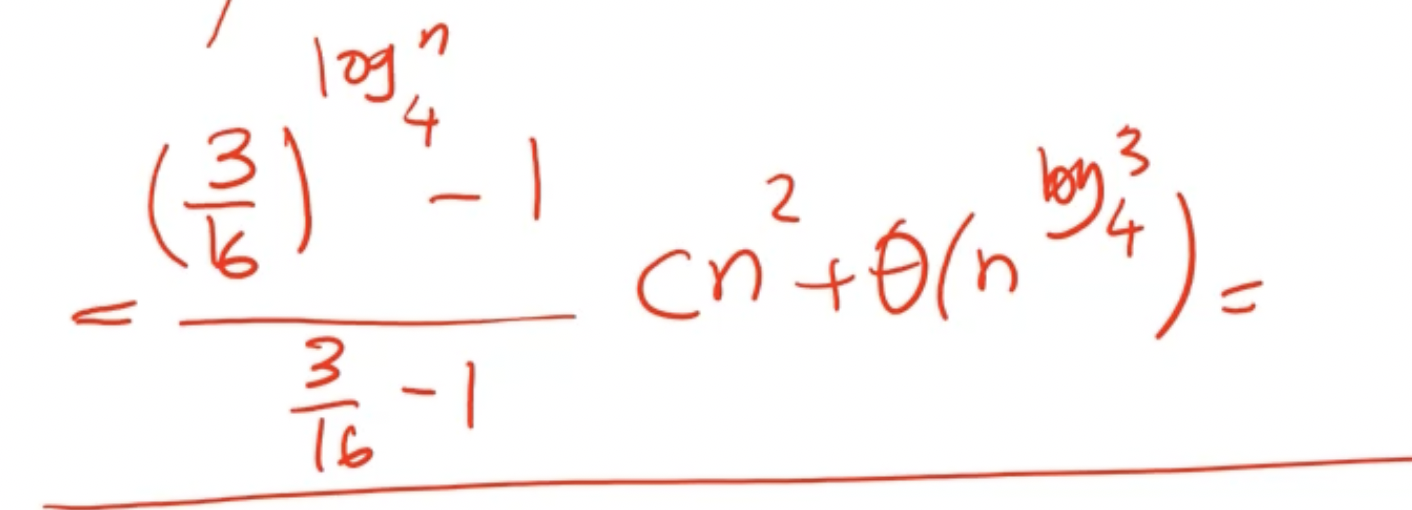 = \frac{(\frac{3}{16})^{\log_4^n} - 1}{\frac{3}{16} - 1} cn^2 + θ(n^{\log_4^3}) =